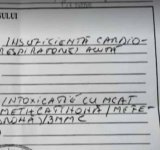 SULUI
INSUFICIENȚĂ CARDIO-
RESPIRATORIE ACUTĂ
INTOXICAȚIE CU MCAT
METILCATINONĂ / MEFE-
DRONĂ / 3MMC